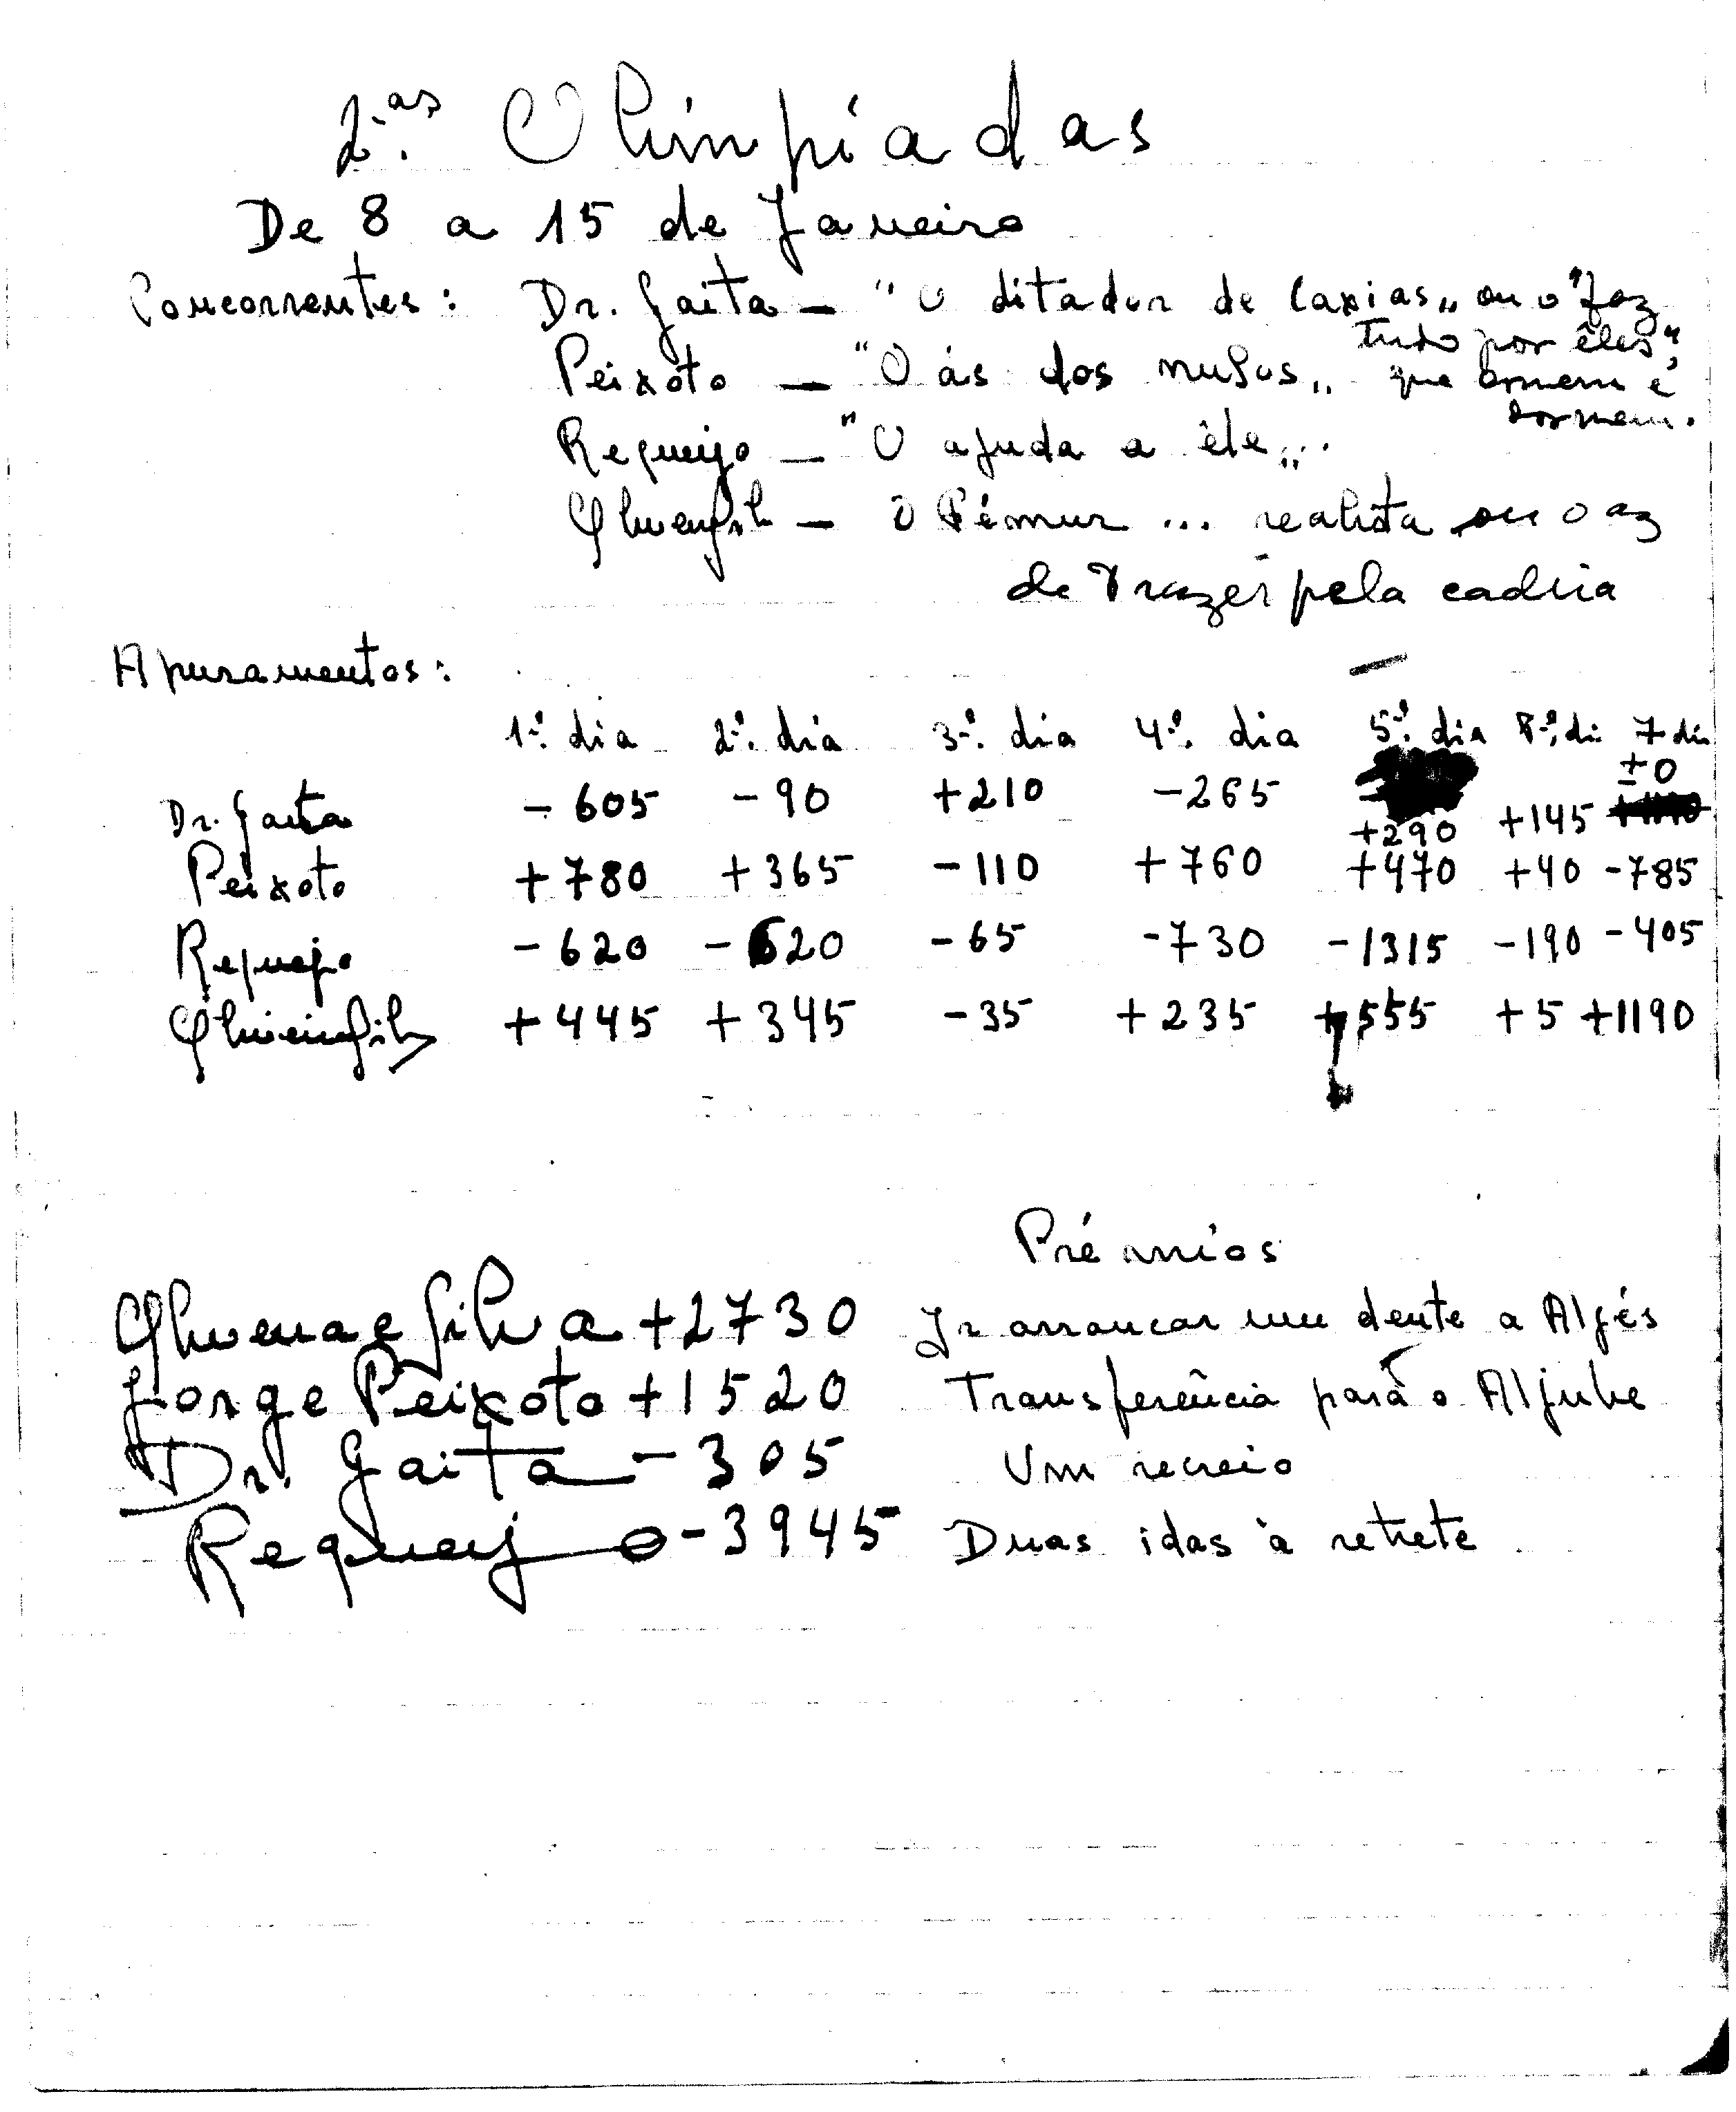 2.as Olimpíadas
De 8 a 15 de Janeiro
Concorrentes: Dr. Gaita — "O ditador de Caxias" ou o "faz
tudo por êles",
Peixoto — "O ás dos nulos" que comem e
dormem.
Requeijo — "O ajuda a êle"...
Oliveira Silv — O Fémur ... realista ou o az
de trazer pela cadeia
Apuramentos:
1.º dia 2.º dia 3.º dia 4.º dia 5.º dia 6.º di 7 dia
±0
Dr. Gaita -605 -90 +210 -265 +290 +145
Peixoto +780 +365 -110 +760 +470 +40 -785
Requeijo -620 -620 -65 -730 -1315 -190 -405
+445 +345 -35 +235 +555 +5 +1190
Prémios
Oliveira e Silva +2730 Ir arrancar um dente a Algés
Jorge Peixoto +1520 Transferência para o Aljube
Dr. Gaita -305 Um recreio
Requeijo -3945 Duas idas à retrete